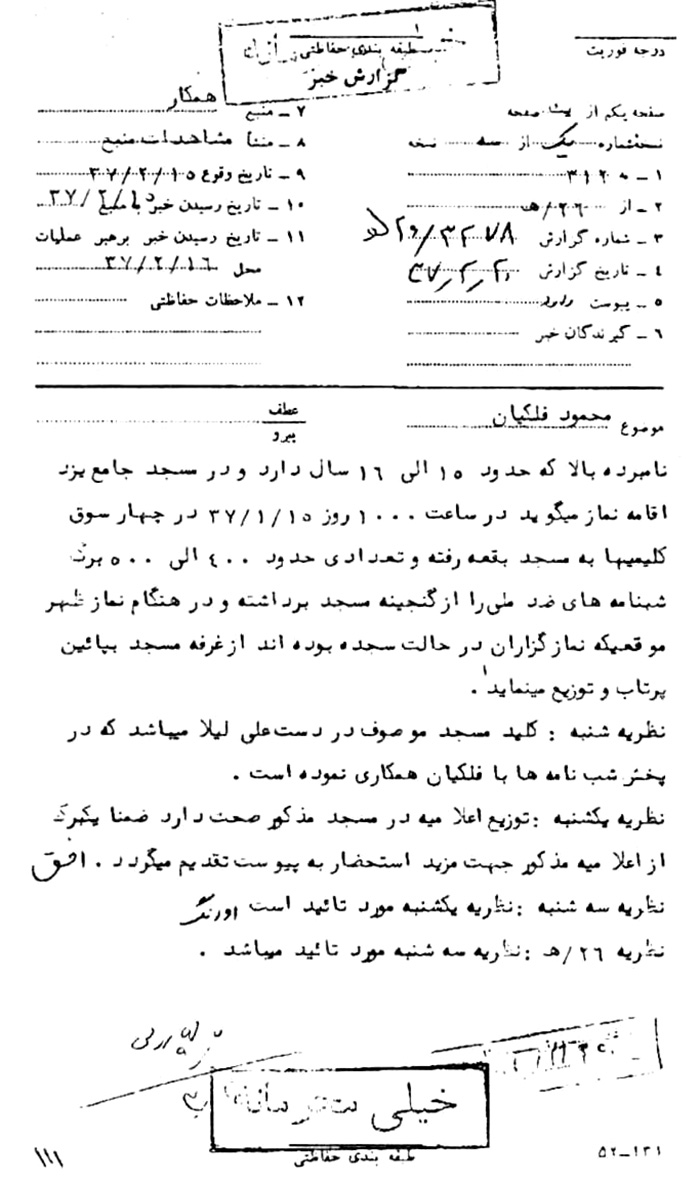 درجه فوریت
طبقه بندی حفاظتی
گزارش خبر
صفحه یکم از صفحه
نسخه‌شماره یک از سه نسخه
۱ ـ ۳۱۲۰
۲ ـ از ۲۶/ه‍
۳ ـ شماره گزارش
۴ ـ تاریخ گزارش
۵ ـ پیوست دارد
۶ ـ گیرندگان خبر
۷ ـ منبع همکار
۸ ـ منشأ مشاهدات منبع
۹ ـ تاریخ وقوع ۳۷/۲/۱۵
۱۰ ـ تاریخ رسیدن خبر به منبع ۳۷/۲/۱۵
۱۱ ـ تاریخ رسیدن خبر برهبر عملیات
محل ۳۷/۲/۱۶
۱۲ ـ ملاحظات حفاظتی
موضوع محمود فلکیان
عطف
پیرو
نامبرده بالا که حدود ۱۵ الی ۱۶ سال دارد و در مسجد جامع یزد
اقامه نماز میگوید در ساعت ۱۰۰۰ روز ۳۷/۱/۱۵ در چهار سوق
کلیمیها به مسجد بقعه رفته و تعدادی حدود ۴۰۰ الی ۵۰۰ برگ
شبنامه های ضد ملی را از گنجینه مسجد برداشته و در هنگام نماز ظهر
موقعیکه نماز گزاران در حالت سجده بوده اند از غرفه مسجد بپائین
پرتاب و توزیع مینماید .
نظریه شنبه : کلید مسجد موصوف در دست علی لیلا میباشد که در
پخش شب نامه ها با فلکیان همکاری نموده است .
نظریه یکشنبه : توزیع اعلا میه در مسجد مذکور صحت دارد ضمنا یکبرگ
از اعلا میه مذکور جهت مزید استحضار به پیوست تقدیم میگردد . افق
نظریه سه شنبه : نظریه یکشنبه مورد تائید است اورنگ
نظریه ۲۶/ه‍ : نظریه سه شنبه مورد تائید میباشد .
خیلی
طبقه بندی حفاظتی
۵۲ـ۱۳۱
۱۱۱